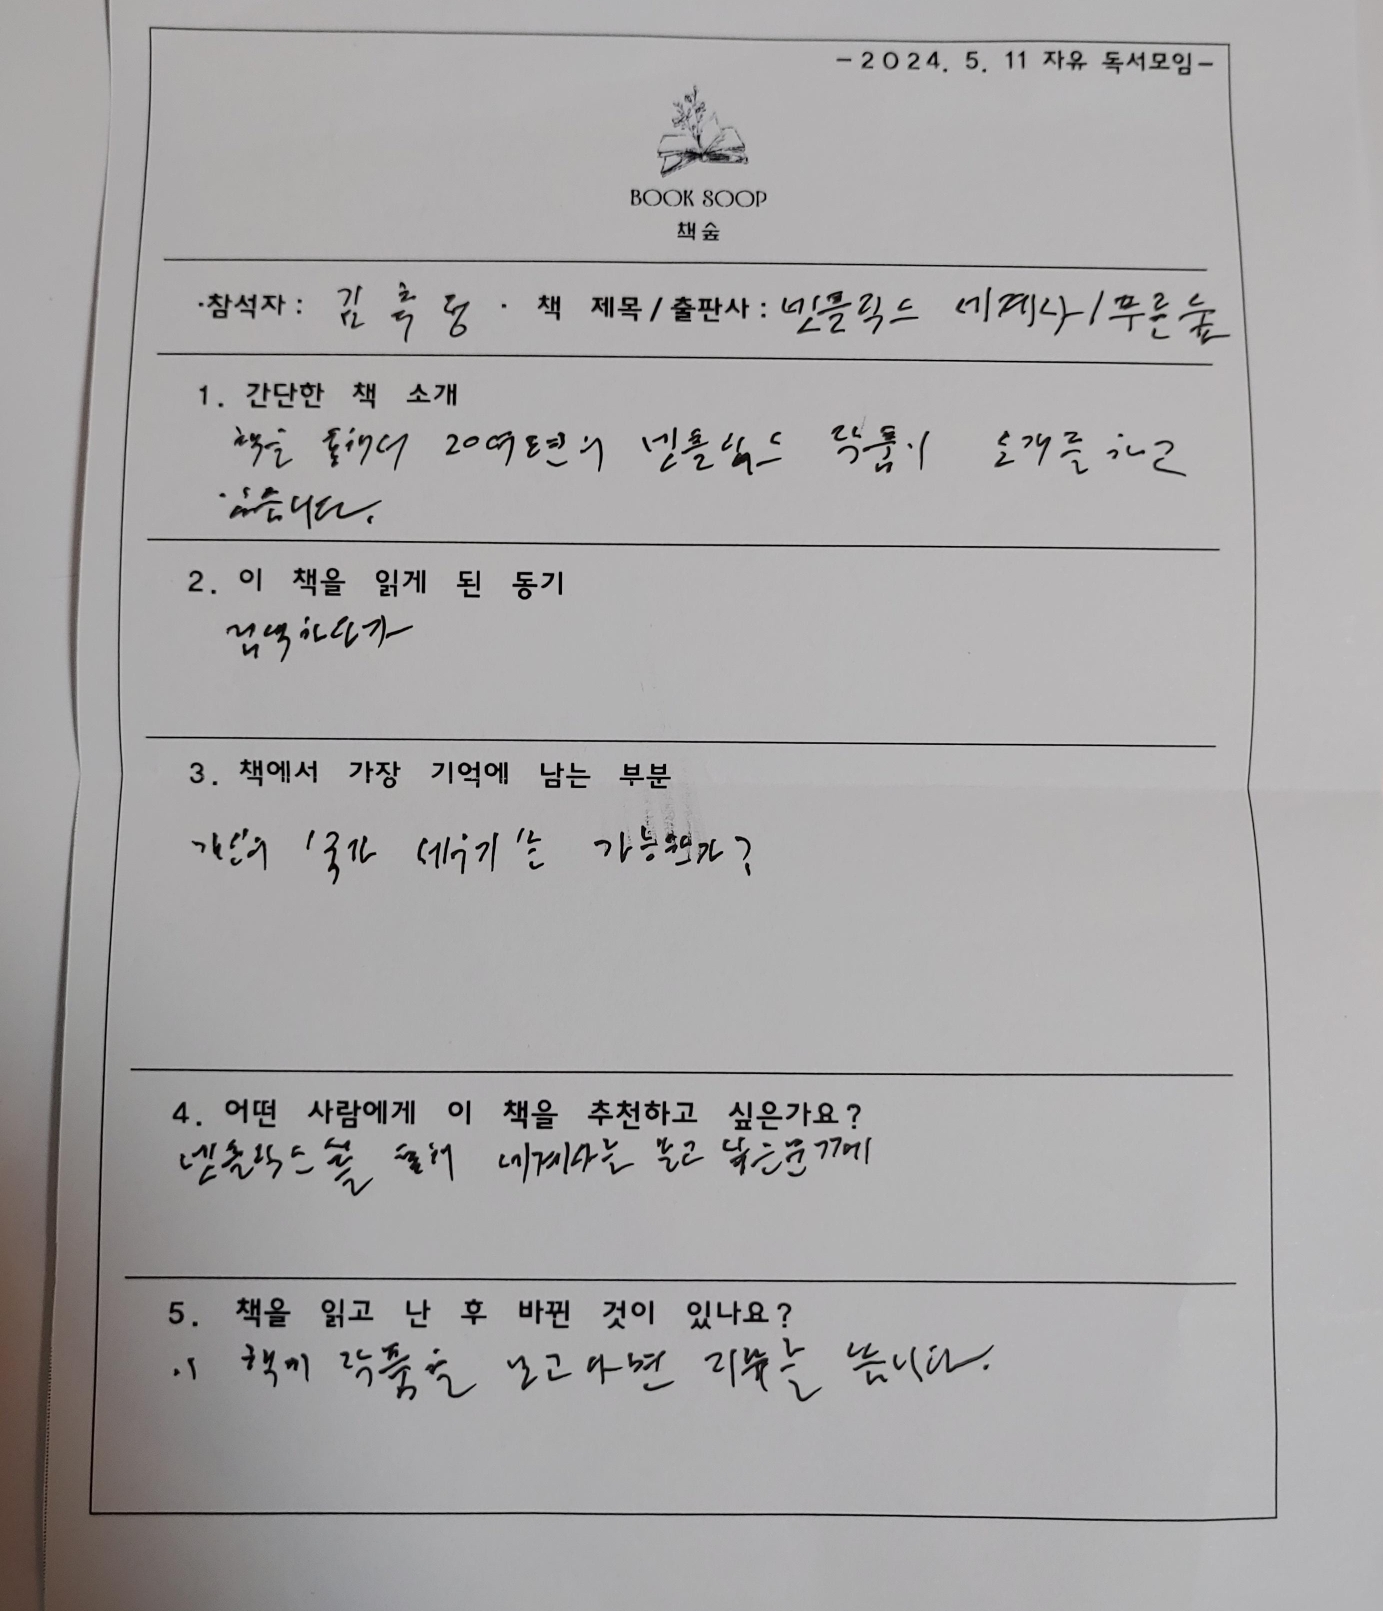 -2024. 5. 11 자유 독서모임-
BOOK SOOP
책숲
·참석자: 김 · 책 제목/출판사: 넷플릭스 세계사/푸른숲
1. 간단한 책 소개
책을 통해서 20여 편의 넷플릭스 작품이 소개를 하고
있습니다.
2. 이 책을 읽게 된 동기
검색하다가
3. 책에서 가장 기억에 남는 부분
개인의 '국가 세우기'는 가능한가?
4. 어떤 사람에게 이 책을 추천하고 싶은가요?
넷플릭스를 통해 세계사를 보고 싶은분에게
5. 책을 읽고 난 후 바뀐 것이 있나요?
이 책의 작품을 보고 리뷰를 씁니다.